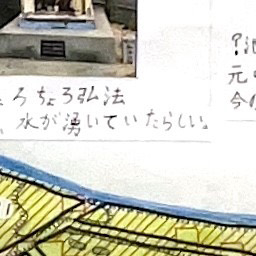 ろちょろ弘法
水が湧いていたらしい。
?池
元
今